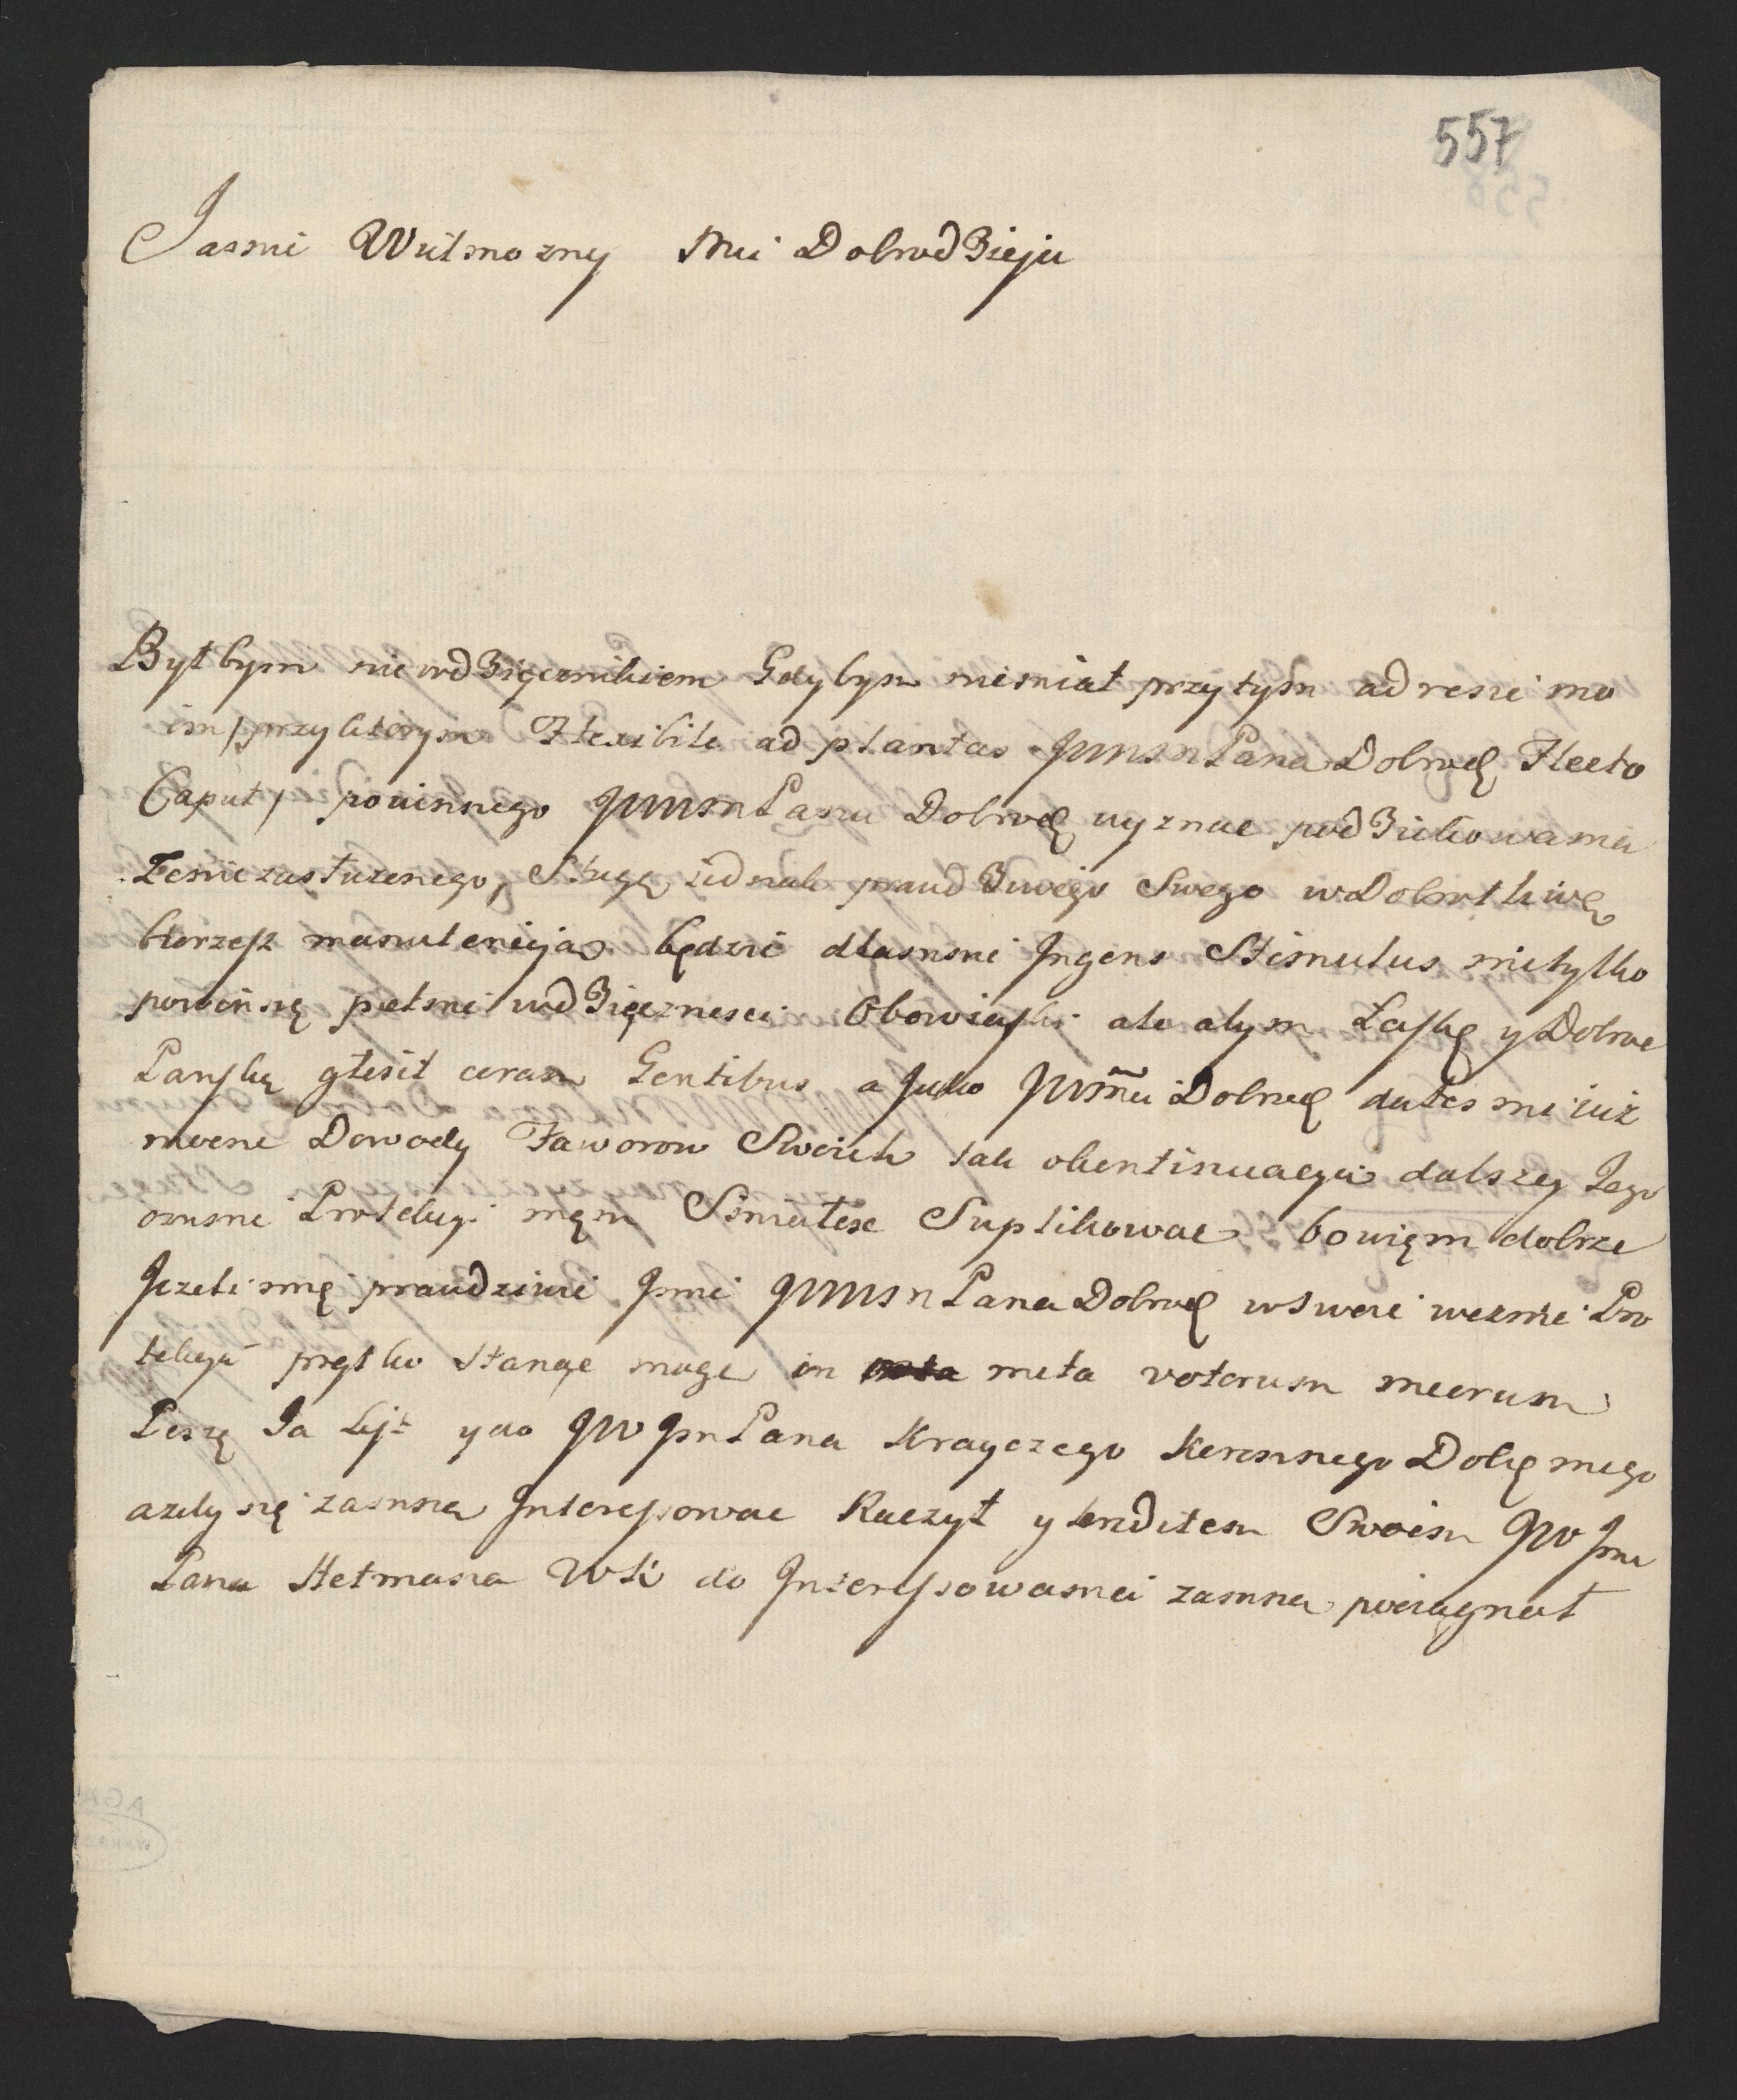 557
Jasnie Wielmozny Mci Dobrodzieju
Byłbym niewdzięcznikiem Gdybym niemiał przytym adresie mo
im/przyktorym Flexibile ad plantas JWWMPana Dobrod. Flecto
Caput/ powinnego JWWMPanu Dobrod. wyznac podziekowania
Zeniezasłuzonego, Sługę iednak prawdziwego Swego w Dobrotliwą
bierzesz manutencją będzie dlamnie Ingens Stimulus nietylko
powinnę pełnić wdzięcznosci Obowiąski ale atym Łaskę y Dobroc
Panską głosić coram Gentibus a Jako JWMci Dobrod. dałes mi iuż
mocne Dowody Faworow Swoich tak okontinuacyą dalszey Jego
omnie Protekcyi męm Smiałosc Suplikowac bowięm dobrze
Jezeli mię prawdziwie Jmi JWWMPana Dobrod. w Swoie wezmie Pro
tekcyą prętko Stanąc mogę in meta votorum meorum
Piszę Ja List ydo JW JmPana Krayczego Koronnego Dobr. mego
azeby się zamną Interessowac Raczył y kreditem Swoim JW Jmci
Pana Hetmana WK do Interessowania zamną pociągnął